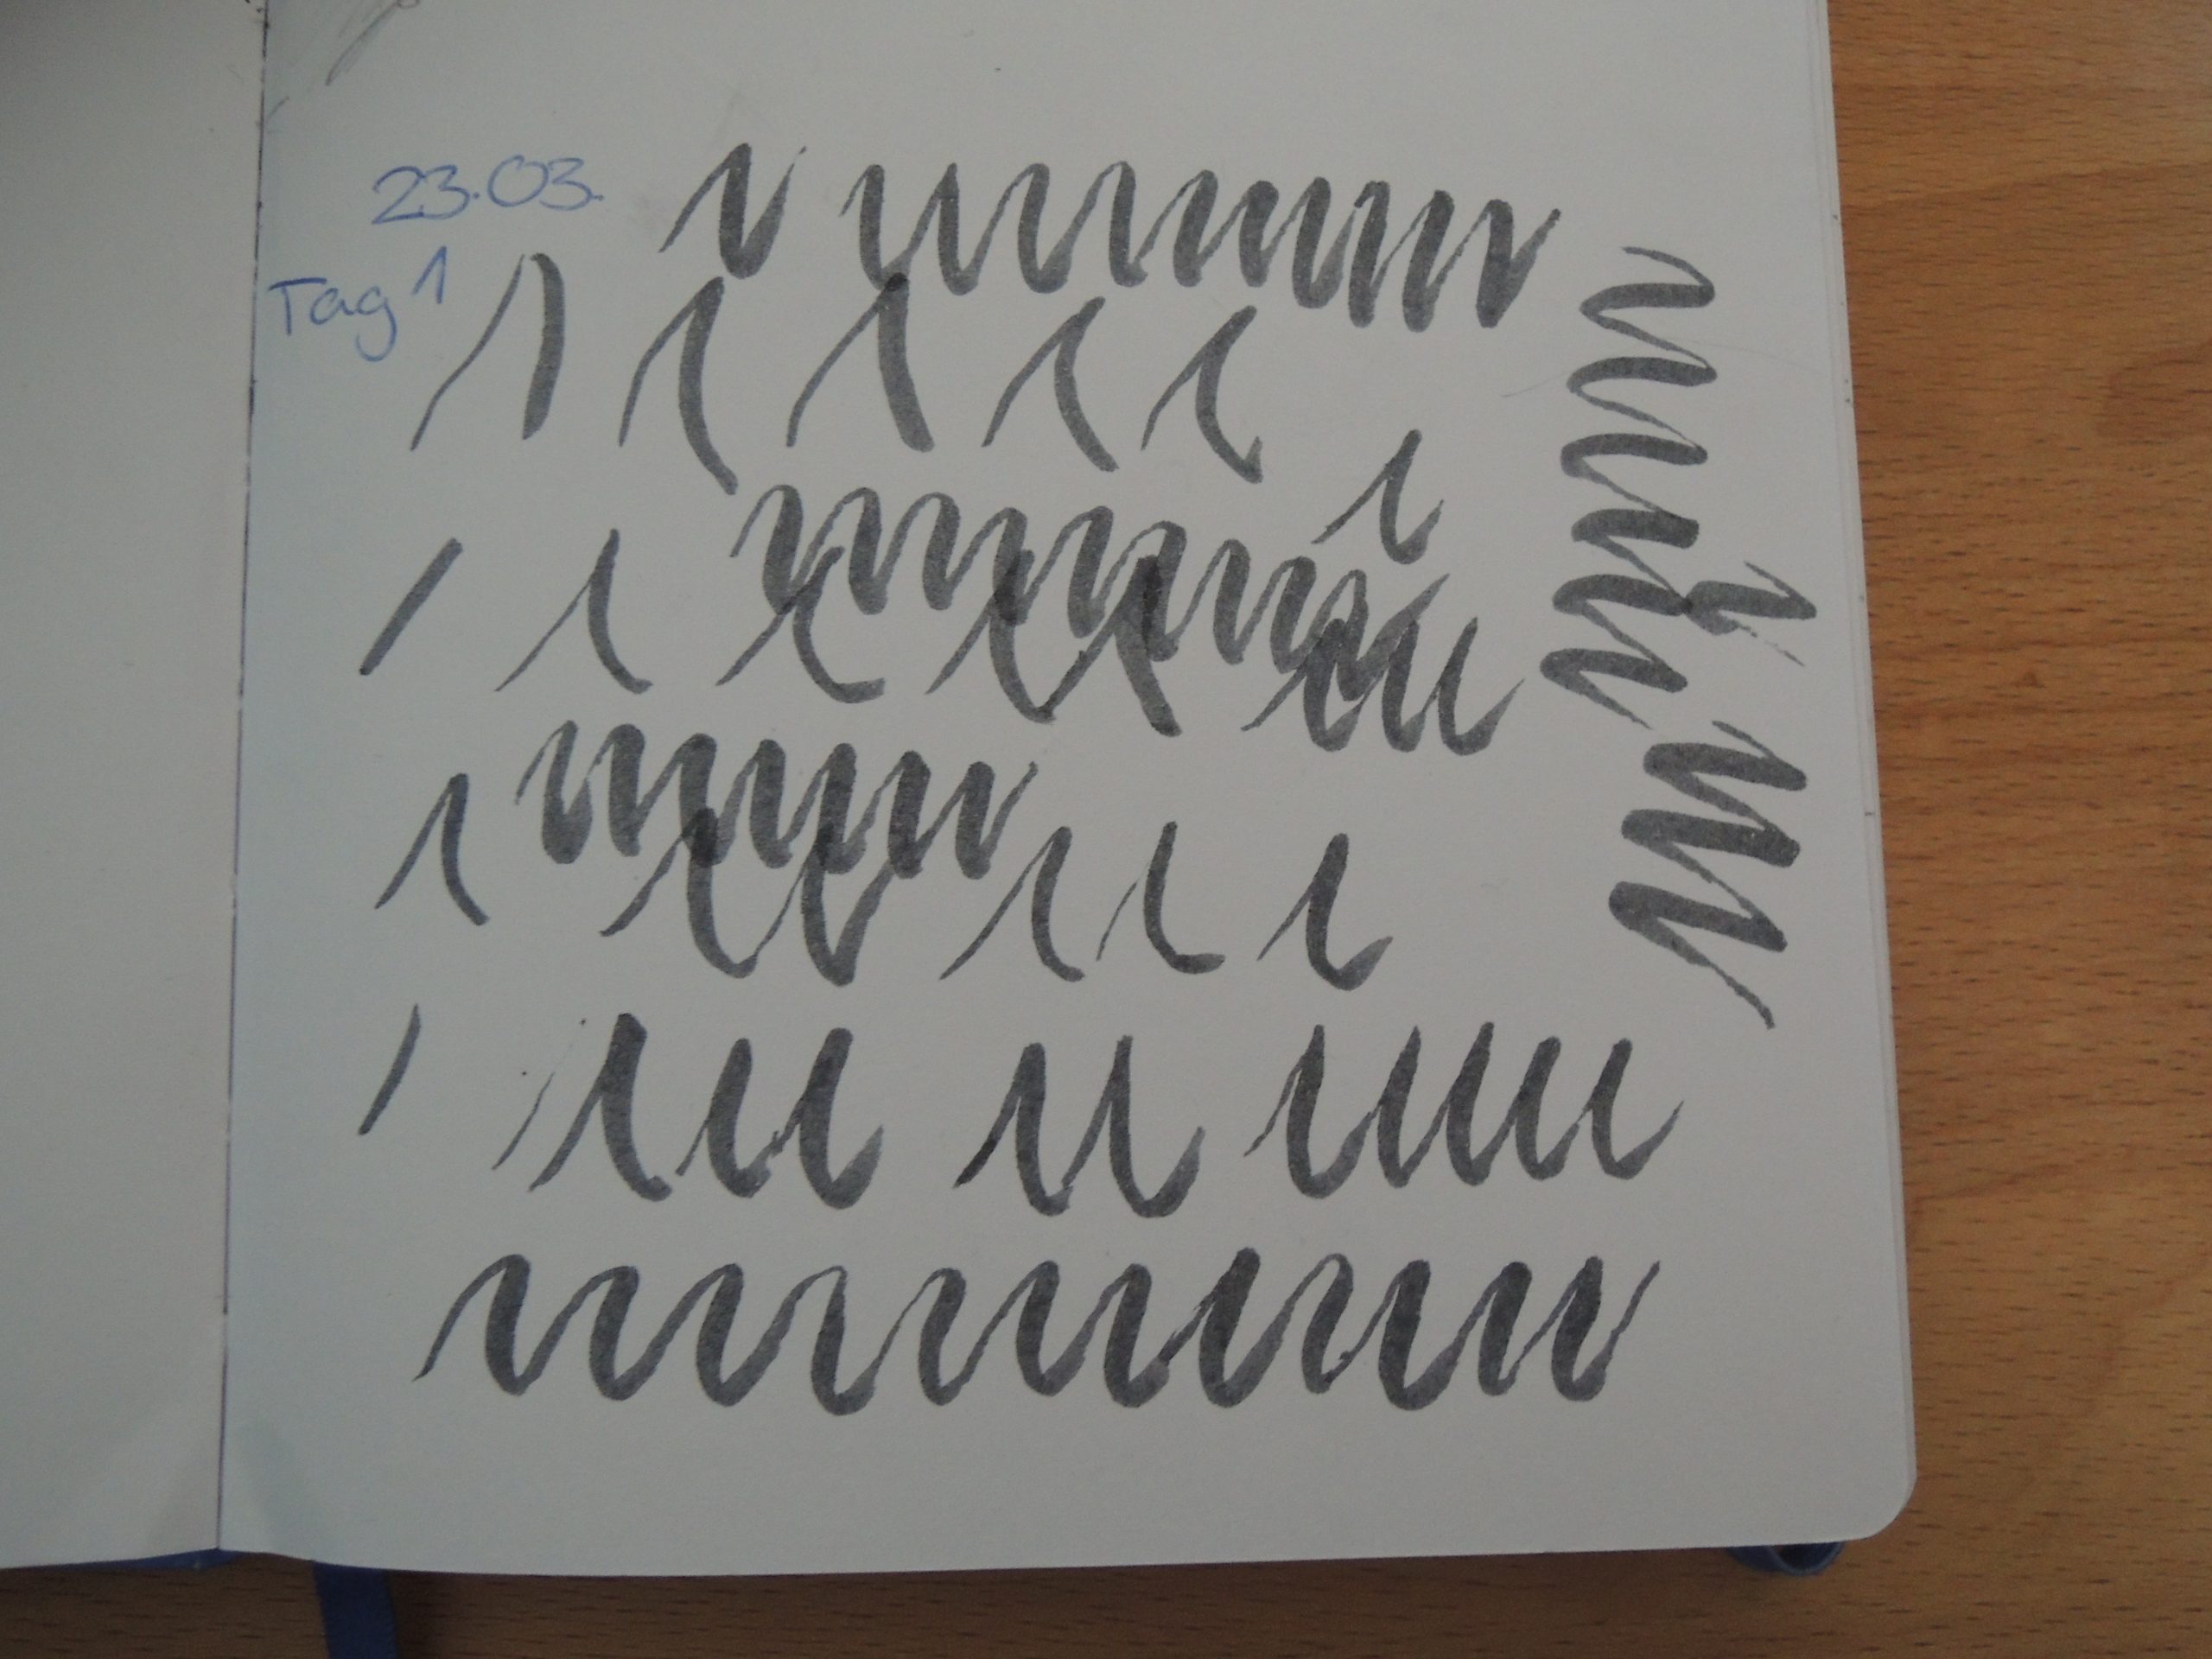 23.03.
Tag 1